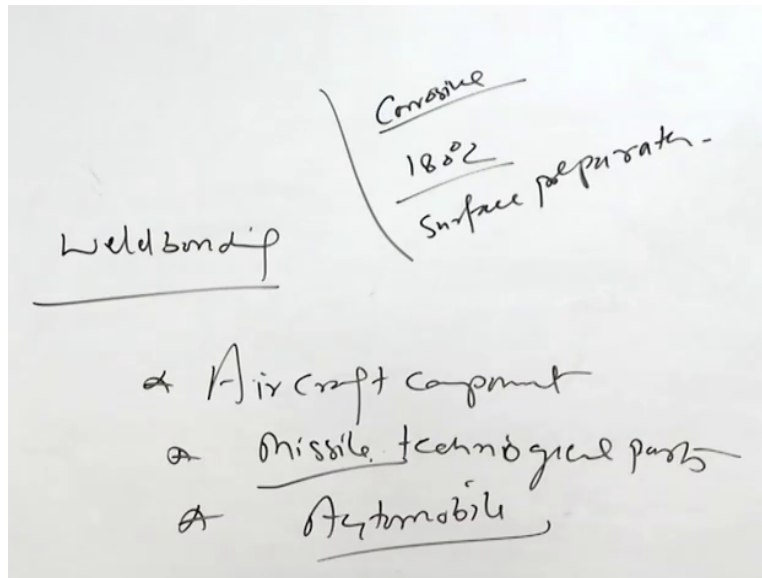 Corrosive
180°C
Surface preparation
Weldbonding
Aircraft component
Missile technological parts
Automobile